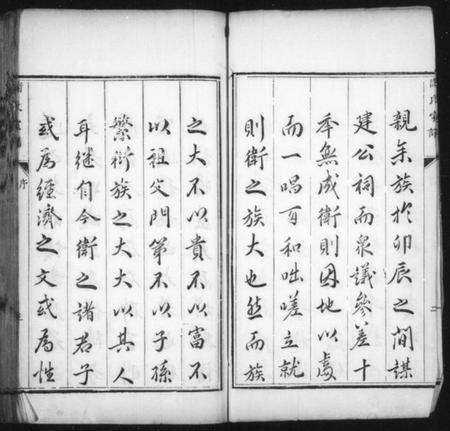 親年族於卯辰之間謀
建公祠而眾議參差十
年無成衛則因地以處
而一唱百和咄嗟立就
則衛之族大也然而族
之大不以貴不以富不
以祖父門第不以子孫
繁衍族之大大以其人
耳繼自今衛之諸君子
或為經濟之文或為性
序